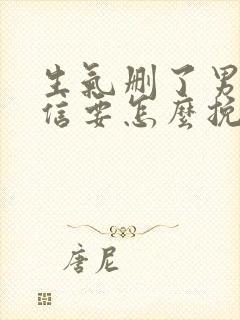 生氣刪了男
信要怎麼挽
唐尼